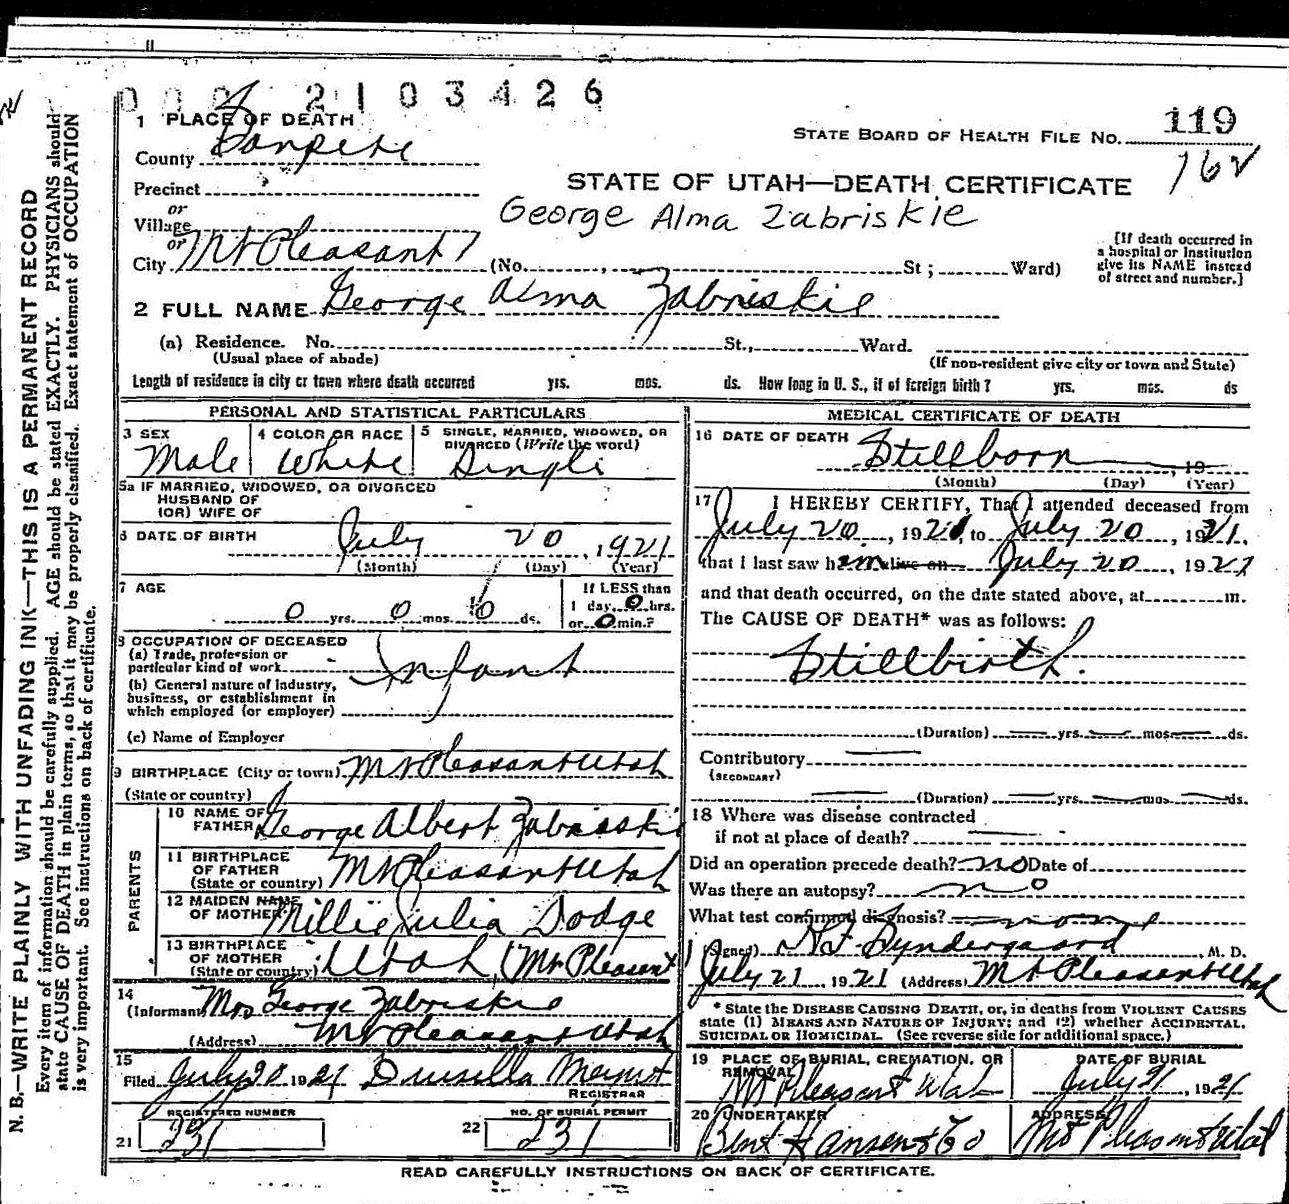 000 2103426
1 PLACE OF DEATH
STATE BOARD OF HEALTH FILE NO. 119
County Sanpete
162
Precinct
STATE OF UTAH—DEATH CERTIFICATE
or
Village
George Alma Zabriskie
or
City Mt Pleasant (No. , St ; Ward)
[If death occurred in
a hospital or institution
give its NAME instead
of street and number.]
2 FULL NAME George Alma Zabriskie
(a) Residence. No. St., Ward.
(Usual place of abode)
(If non-resident give city or town and State)
Length of residence in city or town where death occurred yrs. mos. ds. How long in U. S., if of foreign birth? yrs. mos. ds
PERSONAL AND STATISTICAL PARTICULARS
3 SEX
Male
4 COLOR OR RACE
White
5 SINGLE, MARRIED, WIDOWED, OR
DIVORCED (Write the word)
Single
5a IF MARRIED, WIDOWED, OR DIVORCED
HUSBAND OF
(OR) WIFE OF
6 DATE OF BIRTH July 20, 1921
(Month) (Day) (Year)
7 AGE
0 yrs. 0 mos. 0 ds.
If LESS than
1 day, 0 hrs.
or 0 min.?
8 OCCUPATION OF DECEASED
(a) Trade, profession or
particular kind of work Infant
(b) General nature of industry,
business, or establishment in
which employed (or employer)
(c) Name of Employer
9 BIRTHPLACE (City or town) Mt Pleasant Utah
(State or country)
PARENTS
10 NAME OF
FATHER George Albert Zabriskie
11 BIRTHPLACE
OF FATHER
(State or country) Mt Pleasant Utah
12 MAIDEN NAME
OF MOTHER Millie Julia Dodge
13 BIRTHPLACE
OF MOTHER
(State or country) Utah (Mt Pleasant
14
(Informant) Mrs George Zabriskie
(Address) Mt Pleasant Utah
15
Filed July 20 1921 Drusilla
REGISTRAR
REGISTERED NUMBER
21 231
NO. OF BURIAL PERMIT
22 231
MEDICAL CERTIFICATE OF DEATH
16 DATE OF DEATH Stillborn , 19
(Month) (Day) (Year)
17 I HEREBY CERTIFY, That I attended deceased from
July 20, 1921, to July 20, 1921,
that I last saw him alive on July 20, 1921
and that death occurred, on the date stated above, at m.
The CAUSE OF DEATH* was as follows:
Stillbirth.
(Duration) yrs. mos. ds.
Contributory
(SECONDARY)
(Duration) yrs. mos. ds.
18 Where was disease contracted
if not at place of death?
Did an operation precede death? no Date of
Was there an autopsy? no
What test confirmed diagnosis? none
(Signed) , M. D.
July 21, 1921 (Address) Mt Pleasant Utah
* State the DISEASE CAUSING DEATH, or, in deaths from VIOLENT CAUSES
state (1) MEANS AND NATURE OF INJURY; and (2) whether ACCIDENTAL,
SUICIDAL OR HOMICIDAL. (See reverse side for additional space.)
19 PLACE OF BURIAL, CREMATION, OR
REMOVAL
Mt Pleasant Utah
DATE OF BURIAL
July 21, 1921
20 UNDERTAKER
Bent Hansen & Co
ADDRESS
Mt Pleasant Utah
READ CAREFULLY INSTRUCTIONS ON BACK OF CERTIFICATE.
N. B.—WRITE PLAINLY WITH UNFADING INK—THIS IS A PERMANENT RECORD
Every item of information should be carefully supplied. AGE should be stated EXACTLY. PHYSICIANS should
state CAUSE OF DEATH in plain terms, so that it may be properly classified. Exact statement of OCCUPATION
is very important. See instructions on back of certificate.